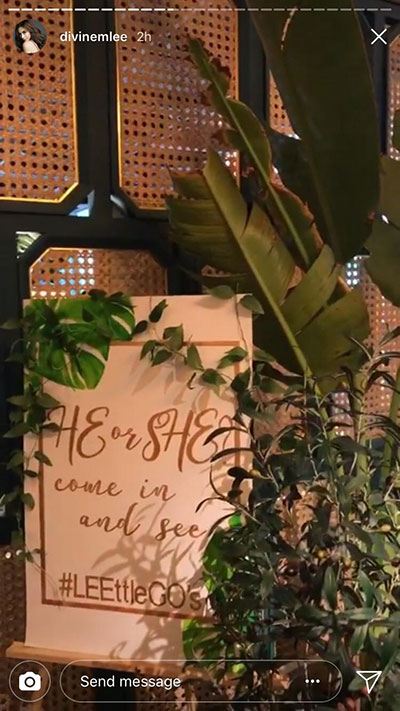 divinemlee 2h
HE or SHE
come in
and see
#LEEttleGO's
Send message